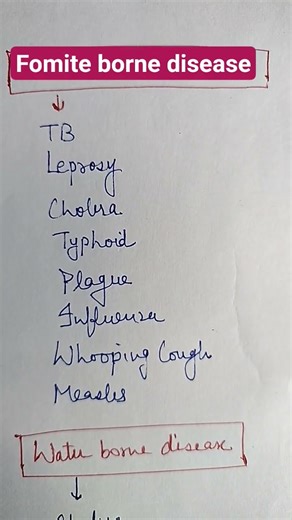 Fomite borne disease
TB
Leprosy
Cholera
Typhoid
Plague
Influenza
Whooping Cough
Measles
Water borne disease